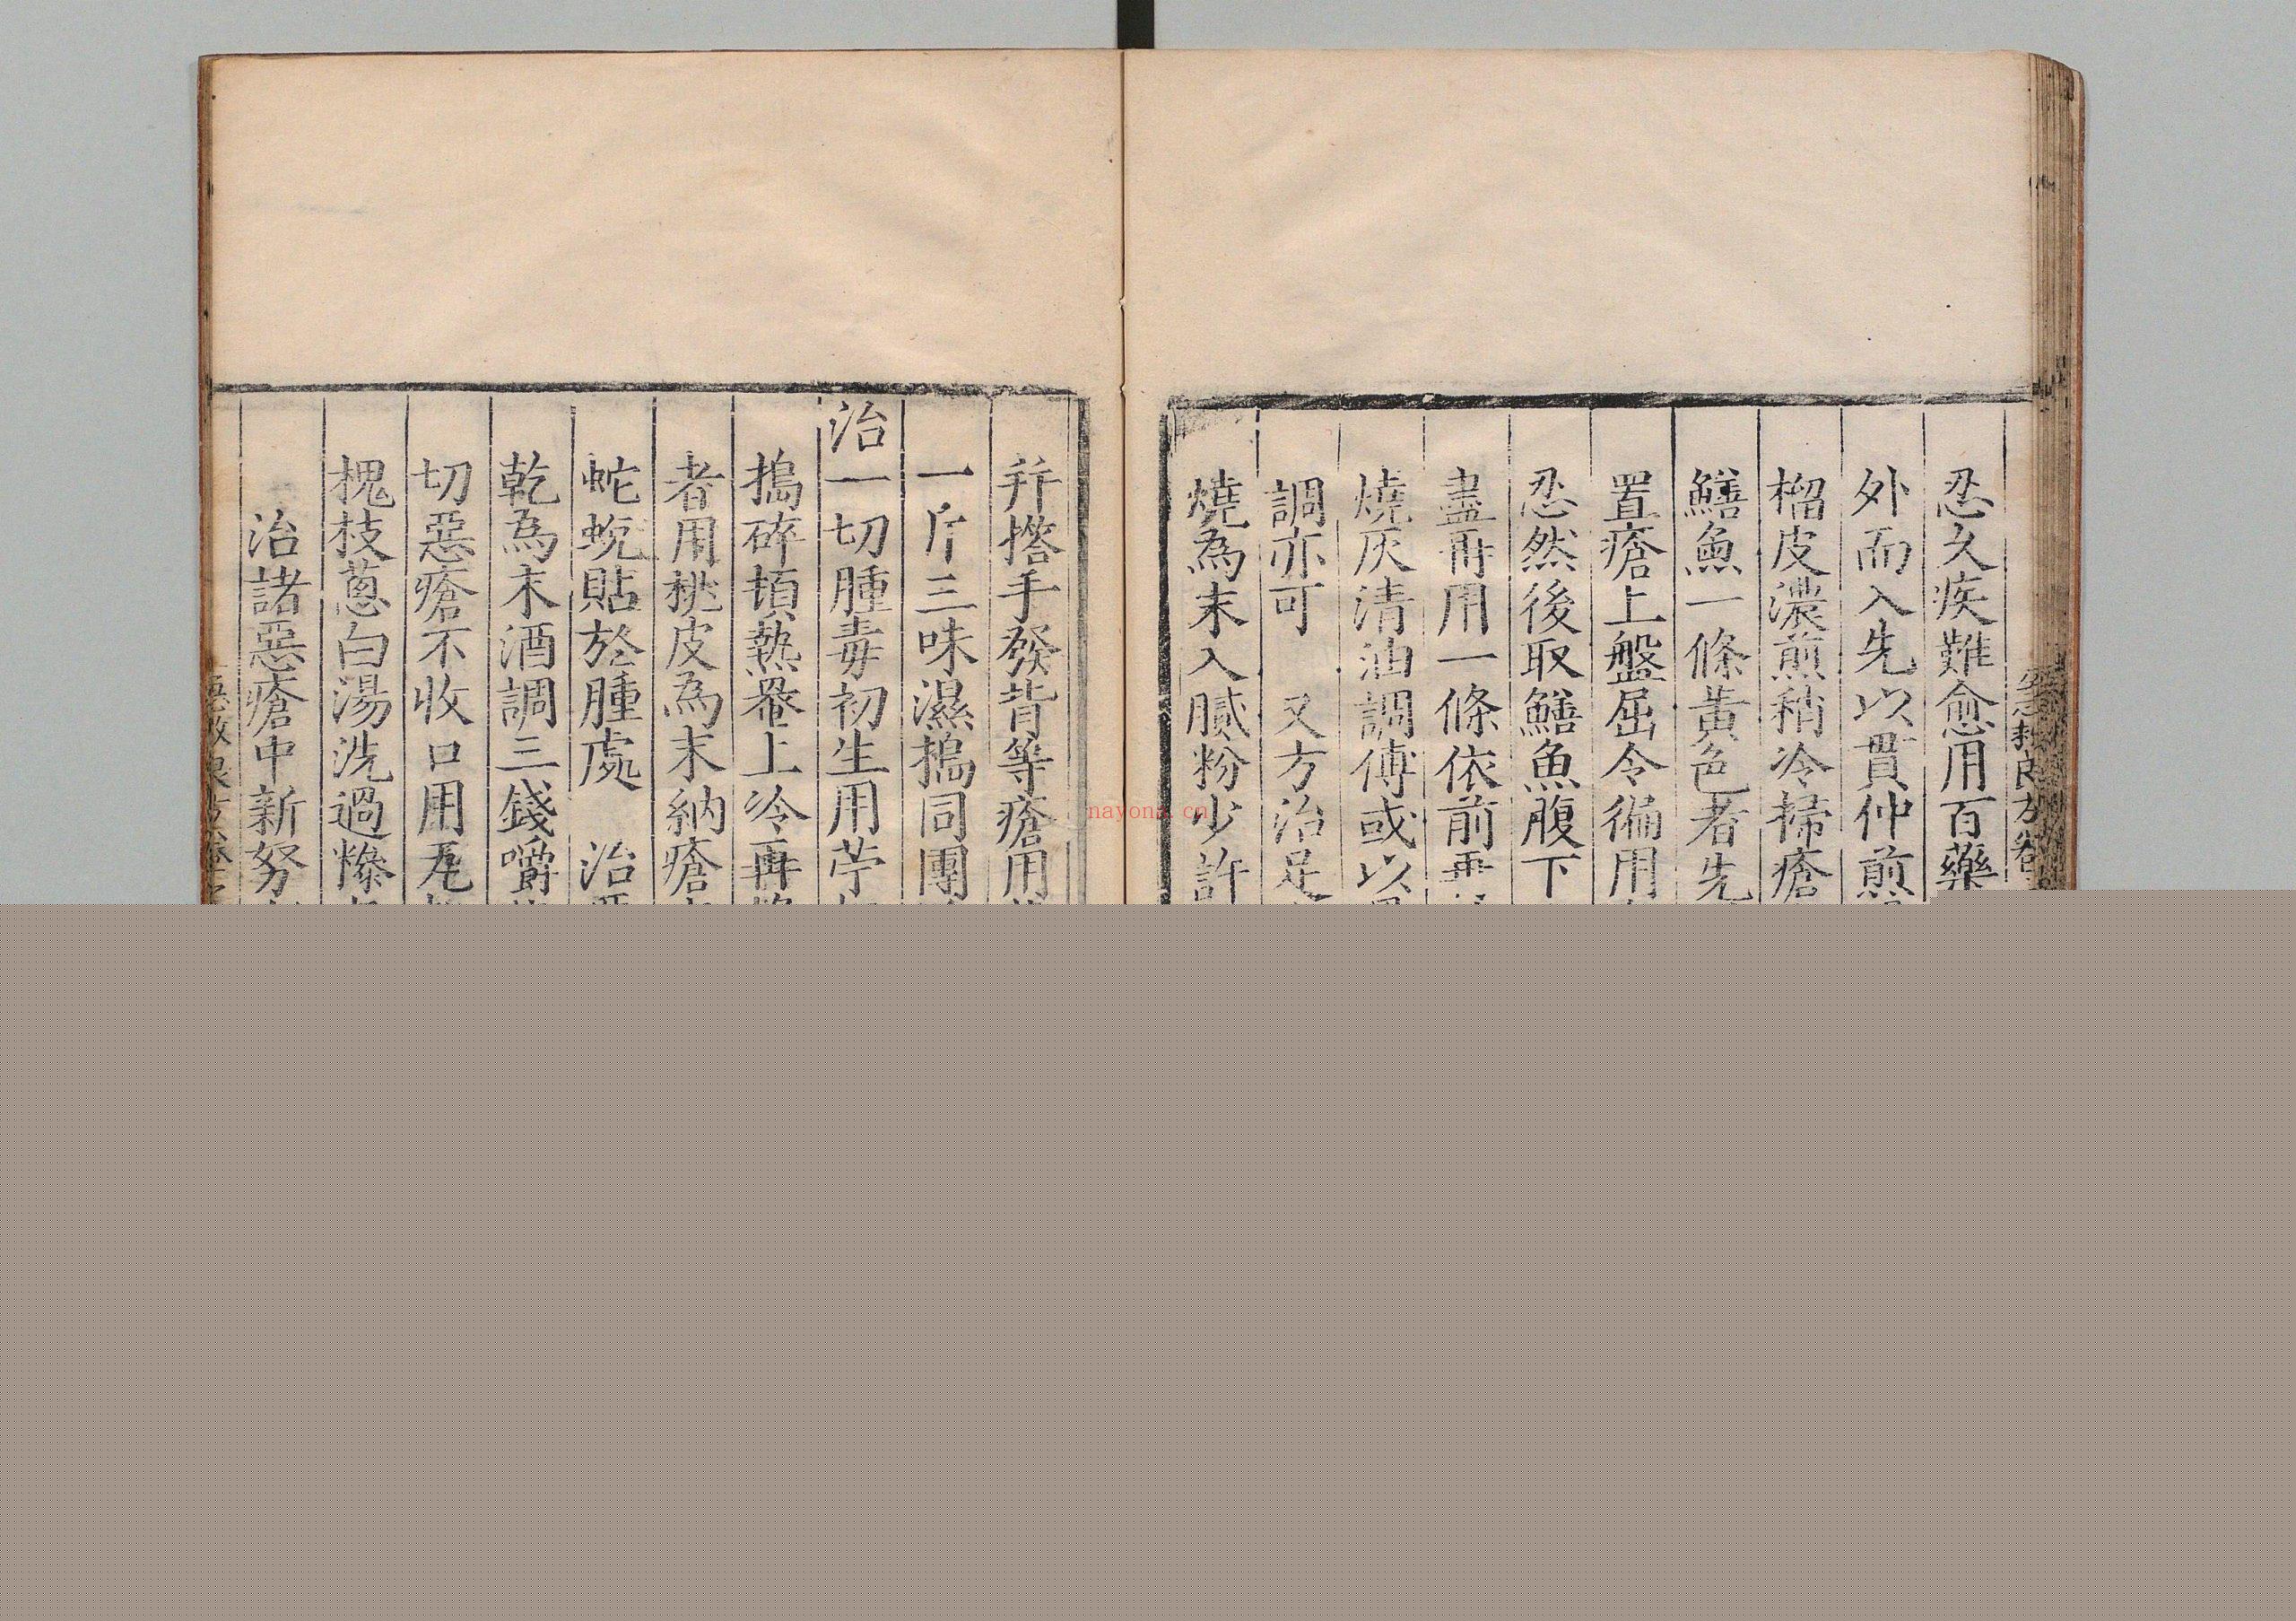 忍久疾難愈用百藥
外而入先以貫仲煎
榴皮濃煎稍冷掃瘡
鱔魚一條黃色者先
置瘡上盤屈令徧用
忍然後取鱔魚腹下
盡再用一條依前
燒灰清油調傅或以
調亦可　又方治足
燒為末入膩粉少許
并撘手發背等瘡用
一斤三味濕搗同團
治一切腫毒初生用苧
搗碎頓熱罨上冷再
者用桃皮為末納瘡
蛇蛻貼於腫處　治
乾為末酒調三錢嚼
切惡瘡不收口用
槐枝蔥白湯洗過糝
治諸惡瘡中新努
nayona.cn